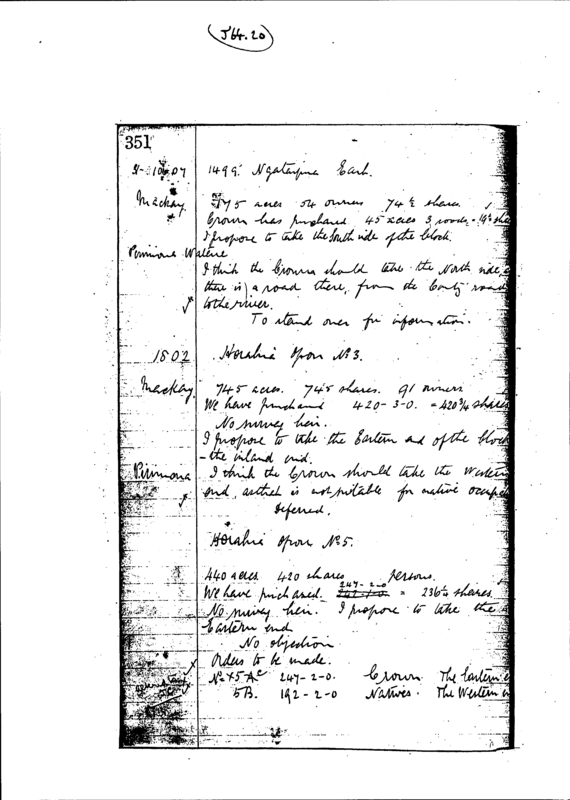 J64.20
351
31-10-07 1499. Earl.
Mackay 75 acres 54 owners 74½ shares.
Crown has purchased 45 acres 3 roods =
I propose to take the South side of the block.
I think the Crown should take the North side,
there is a road there, from the County road
to the river.
To stand over for information.
1502 Horahia Opou No 3.
Mackay 745 acres. 745 shares. 91 owners
We have purchased 420-3-0. = 420¾ shares
No survey lien.
I propose to take the Eastern end of the block
- the inland end.
Pirimona I think the Crown should take the Western
end, as that is not suitable for native
Deferred.
Horahia Opou No 5.
440 acres. 420 shares persons.
247-2-0
We have purchased = 236¼ shares.
No survey lien. I propose to take the
Eastern end
No objection
Orders to be made.
No 5A 247-2-0. Crown The Eastern
5B. 192-2-0 Natives. The Western